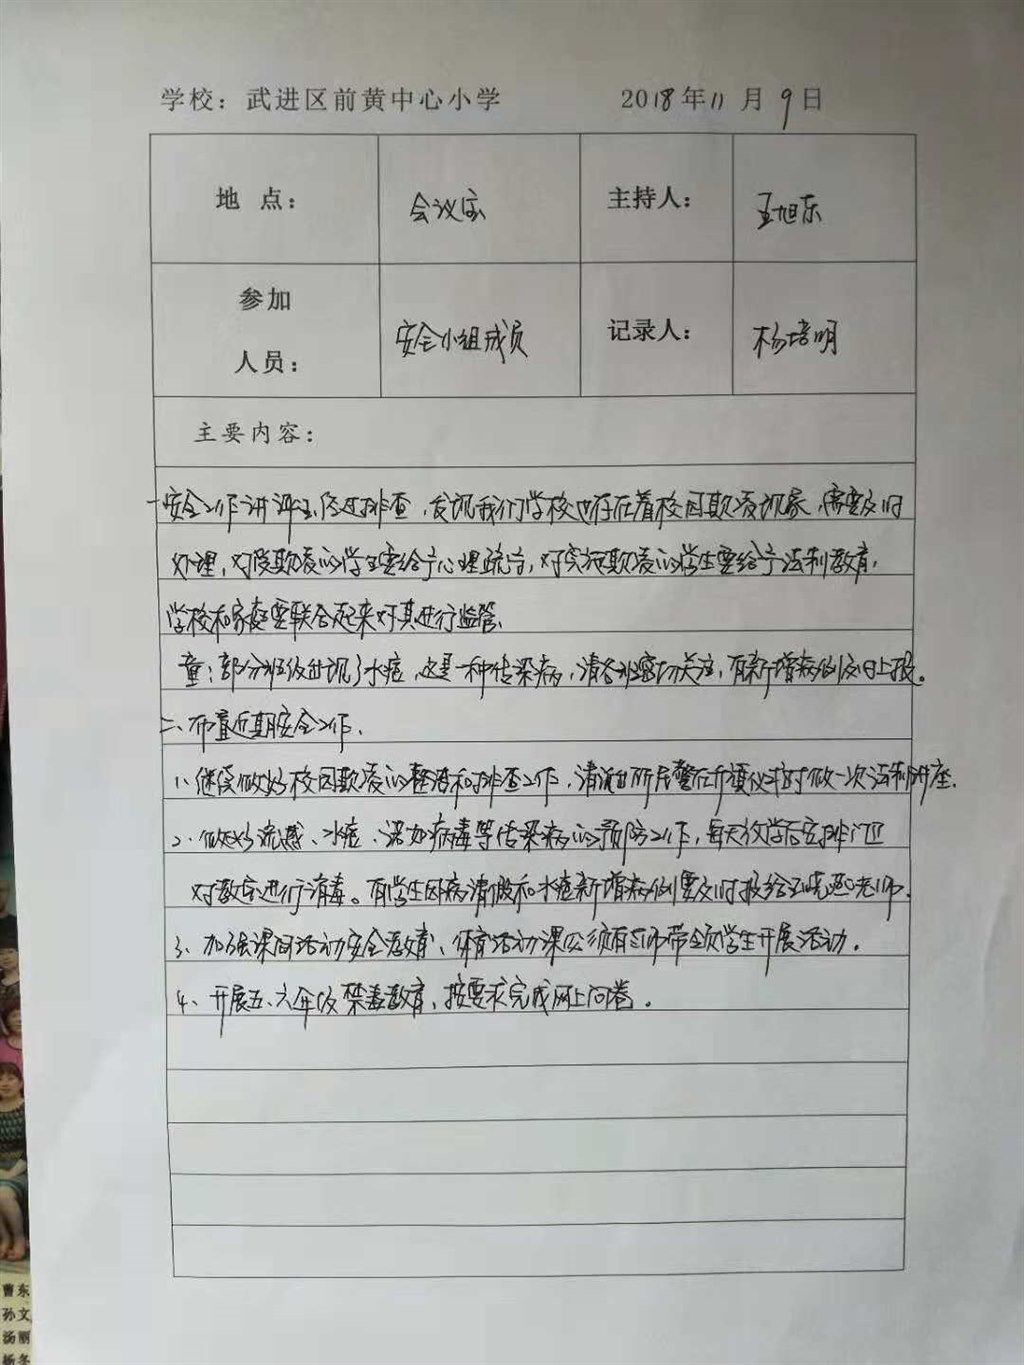 学校：武进区前黄中心小学 2018年11月9日
地 点： 会议室 主持人： 王旭东
参加
人员： 安全小组成员 记录人： 杨培明
主要内容：
一、安全工作讲评：经过排查，发现我们学校也存在着校园欺凌现象，需要及时
处理，对受欺凌的学生要给予心理疏导，对实施欺凌的学生要给予法制教育，
学校和家庭要联合起来对其进行监管。
童：部分班级出现了水痘，这是一种传染病，请各班密切关注，有新增病例及时上报。
二、布置近期安全工作、
1、继续做好校园欺凌的整治和排查工作，请派出所民警在升旗仪式时做一次法制讲座.
2、做好流感、水痘、诺如病毒等传染病的预防工作，每天放学后安排门卫
对教室进行消毒。有学生因病请假和水痘新增病例要及时报给王晓燕老师.
3、加强课间活动安全教育、体育活动课必须有老师带领学生开展活动.
4、开展五、六年级禁毒教育、按要求完成网上问卷。
曹东
孙文
汤丽
杨冬